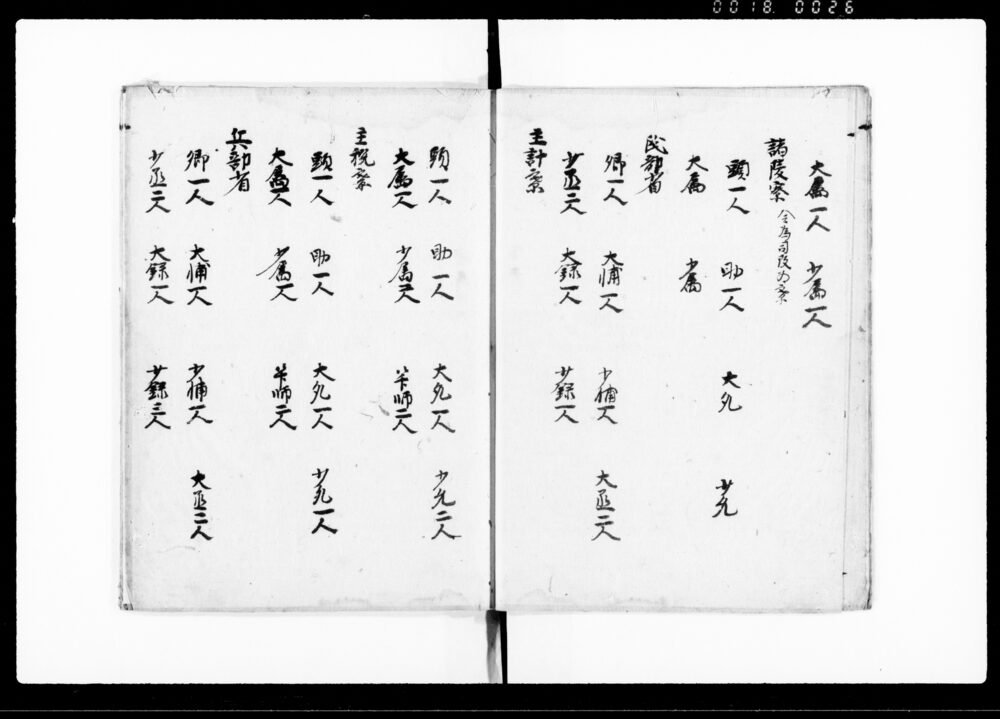 0018. 0026
大属一人 少属一人
諸陵寮 令為司改為寮
頭一人 助一人 大允 少允
大属 少属
民部省
卿一人 大輔一人 少輔一人 大丞二人
少丞二人 大録一人 少録一人
主計寮
頭一人 助一人 大允一人 少允二人
大属一人 少属一人 算師二人
主税寮
頭一人 助一人 大允一人 少允一人
大属一人 少属一人 算師二人
兵部省
卿一人 大輔一人 少輔一人 大丞二人
少丞二人 大録一人 少録三人